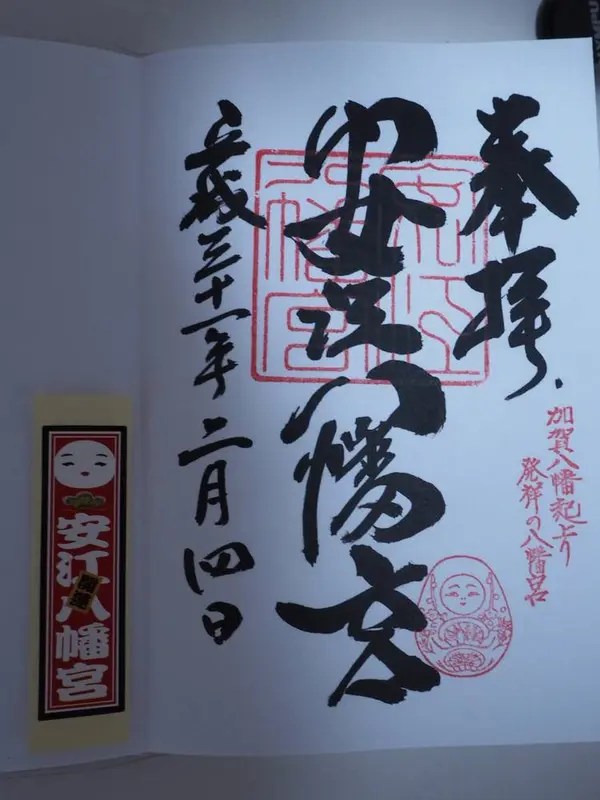 奉拝
加賀八幡起上り
発祥の八幡宮
安江八幡宮
平成三十一年二月四日
安江八幡宮